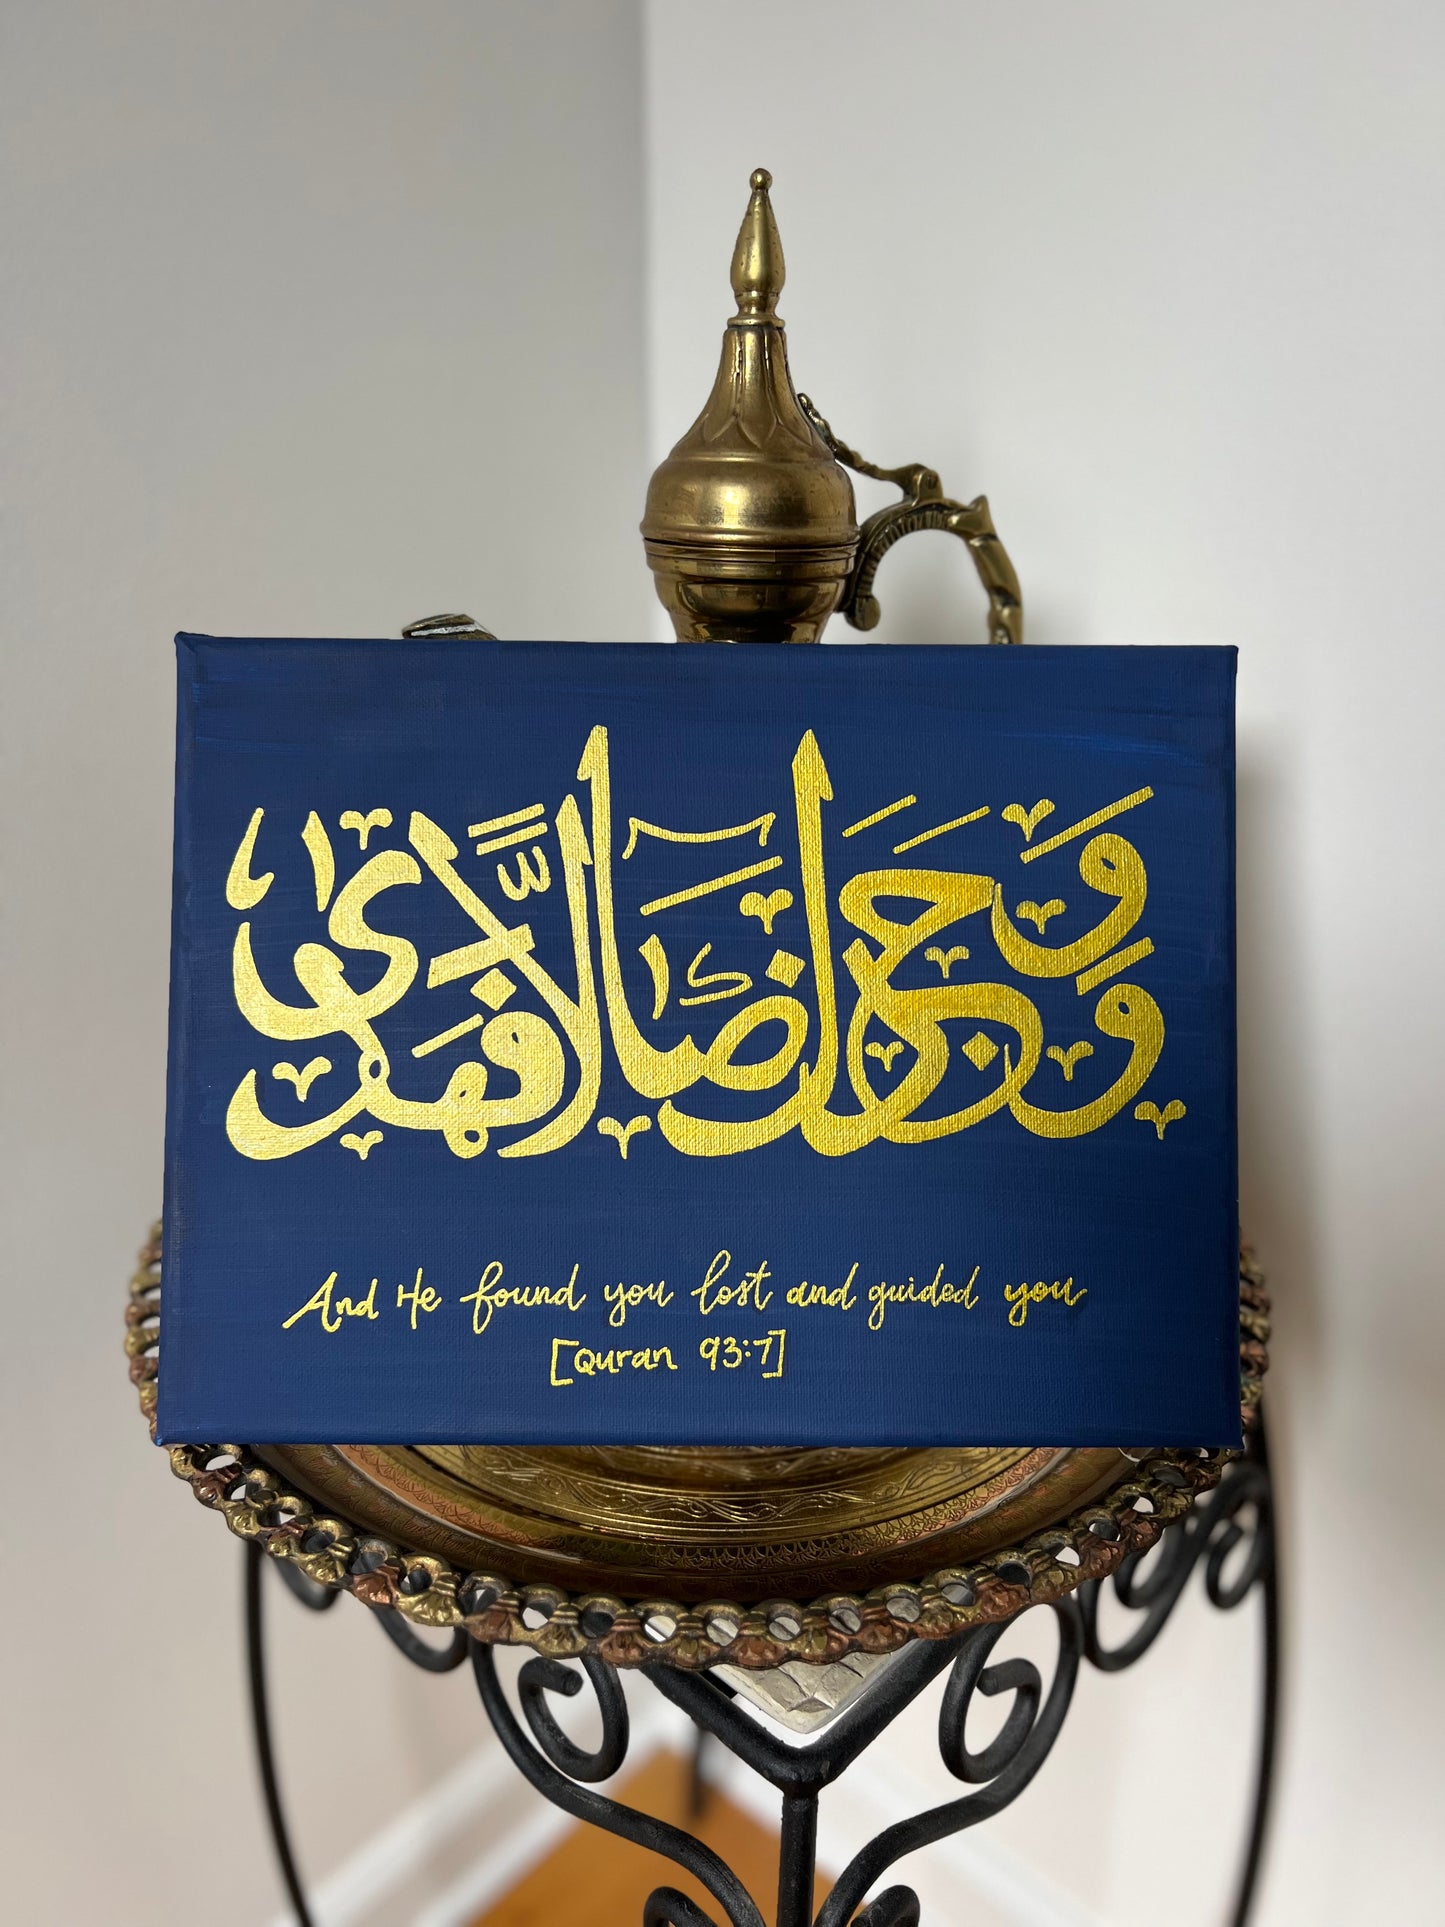 وَوَجَدَكَ ضَالًّا فَهَدَىٰ
And He found you lost and guided you
[Quran 93:7]